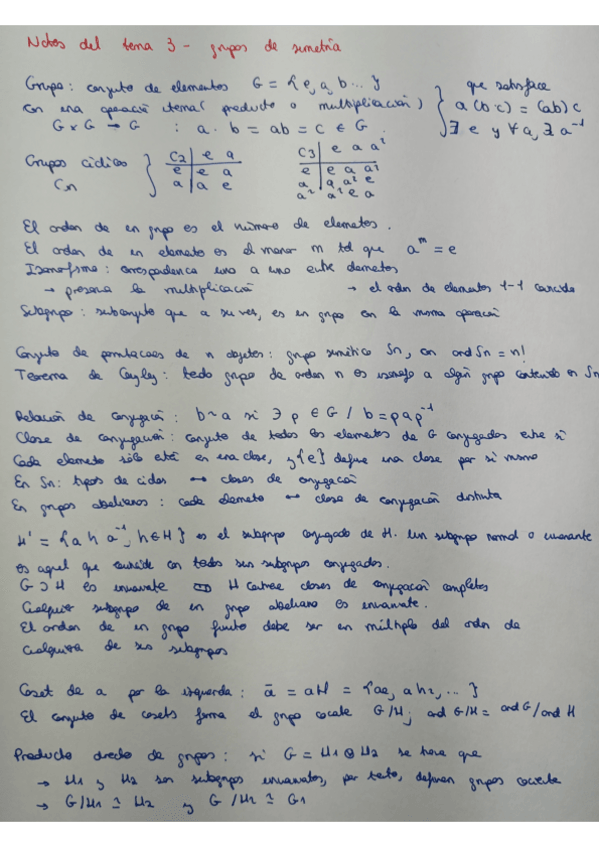 Notas del tema 3 - grupos de simetría
Grupo: conjunto de elementos G = {e, a, b ... } que satisface
con una operación interna (producto o multiplicación) a(b·c) = (ab)c
G × G → G : a · b = ab = c ∈ G ∃ e y ∀ a, ∃ a⁻¹
Grupos cíclicos Cn
C2 | e a
e | e a
a | a e
C3 | e a a²
e | e a a²
a | a a² e
a² | a² e a
El orden de un grupo es el número de elementos.
El orden de un elemento es el menor m tal que aᵐ = e
Isomorfismo: correspondencia uno a uno entre elementos
→ preserva la multiplicación → el orden de elementos 1-1 coincide
Subgrupo: subconjunto que a su vez, es un grupo con la misma operación
Conjunto de permutaciones de n objetos: grupo simétrico Sn, con ord Sn = n!
Teorema de Cayley: todo grupo de orden n es isomorfo a algún grupo contenido en Sn
Relación de conjugación: b ~ a si ∃ p ∈ G / b = p a p⁻¹
Clase de conjugación: conjunto de todos los elementos de G conjugados entre sí
Cada elemento sólo está en una clase, y {e} define una clase por si mismo
En Sn: tipos de ciclos ↔ clases de conjugación
En grupos abelianos: cada elemento ↔ clase de conjugación distinta
H' = {a h a⁻¹, h ∈ H} es el subgrupo conjugado de H. Un subgrupo normal o invariante
es aquel que coincide con todos sus subgrupos conjugados.
G ⊃ H es invariante ⇔ H contiene clases de conjugación completas
Cualquier subgrupo de un grupo abeliano es invariante.
El orden de un grupo finito debe ser un múltiplo del orden de
cualquiera de sus subgrupos
Coset de a por la izquierda: ā = aH = {ae, ah₂, ... }
El conjunto de cosets forma el grupo cociente G/H; ord G/H = ord G / ord H
Producto directo de grupos: si G = H1 ⊗ H2 se tiene que
→ H1 y H2 son subgrupos invariantes, por tanto, definen grupos cociente
→ G/H1 ≅ H2 y G/H2 ≅ G1